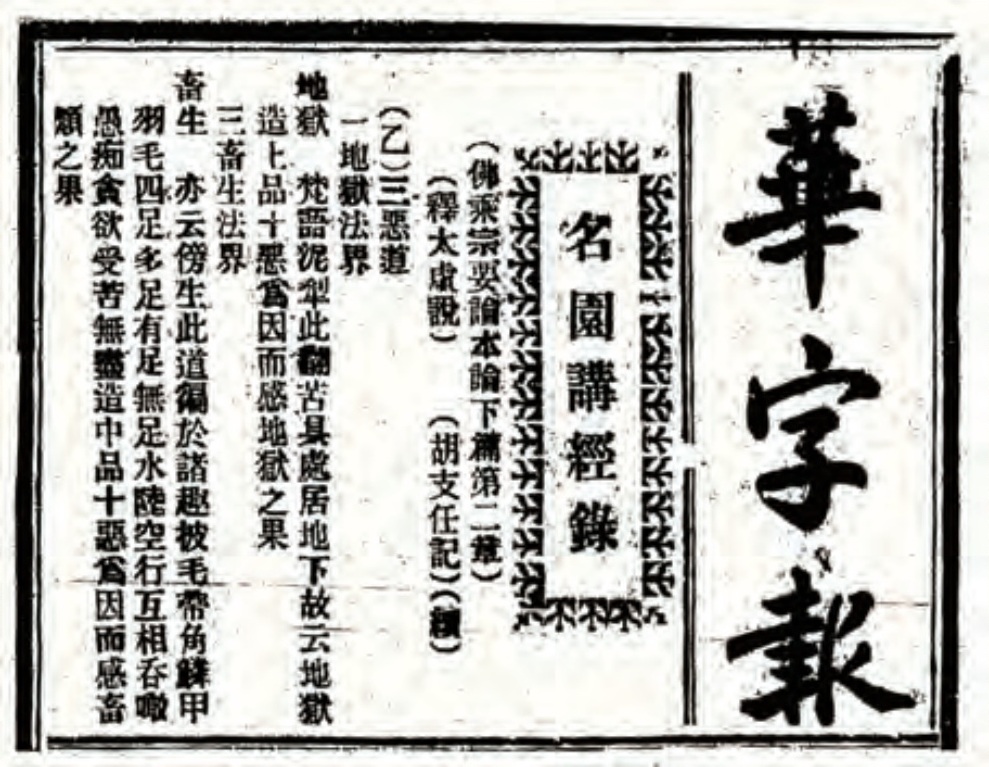 華字報
名園講經錄
(佛乘宗要論本論下篇第二章)
(釋太虛說) (胡支任記)(續)
(乙)三惡道
一地獄法界
地獄 梵語泥犁此翻苦具處居地下故云地獄
造上品十惡爲因而感地獄之果
三畜生法界
畜生 亦云傍生此道徧於諸趣披毛帶角鱗甲
羽毛四足多足有足無足水陸空行互相吞噉
愚痴貪欲受苦無窮造中品十惡爲因而感畜
類之果